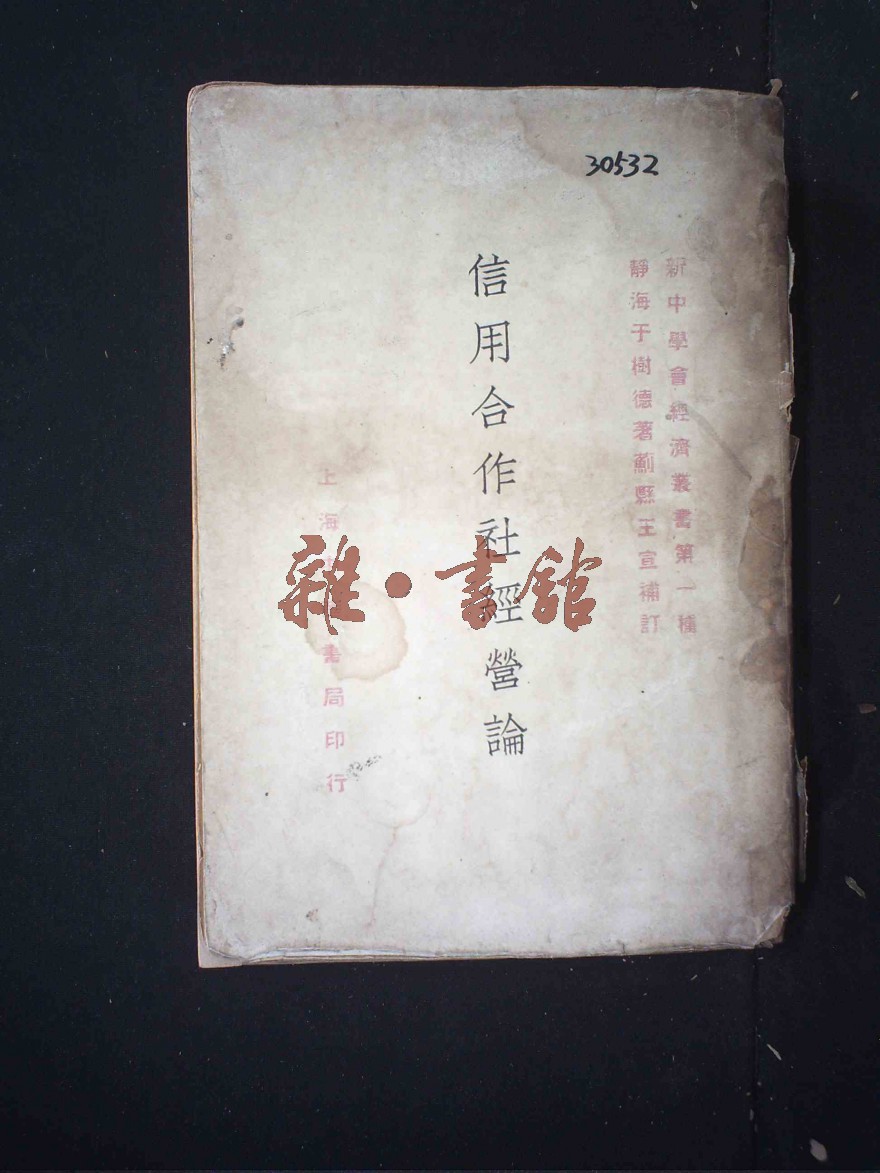 30532
新中學會經濟叢書第一種
靜海于樹德著薊縣王宣補訂
信用合作社經營論
上海
書局印行
雜·書館